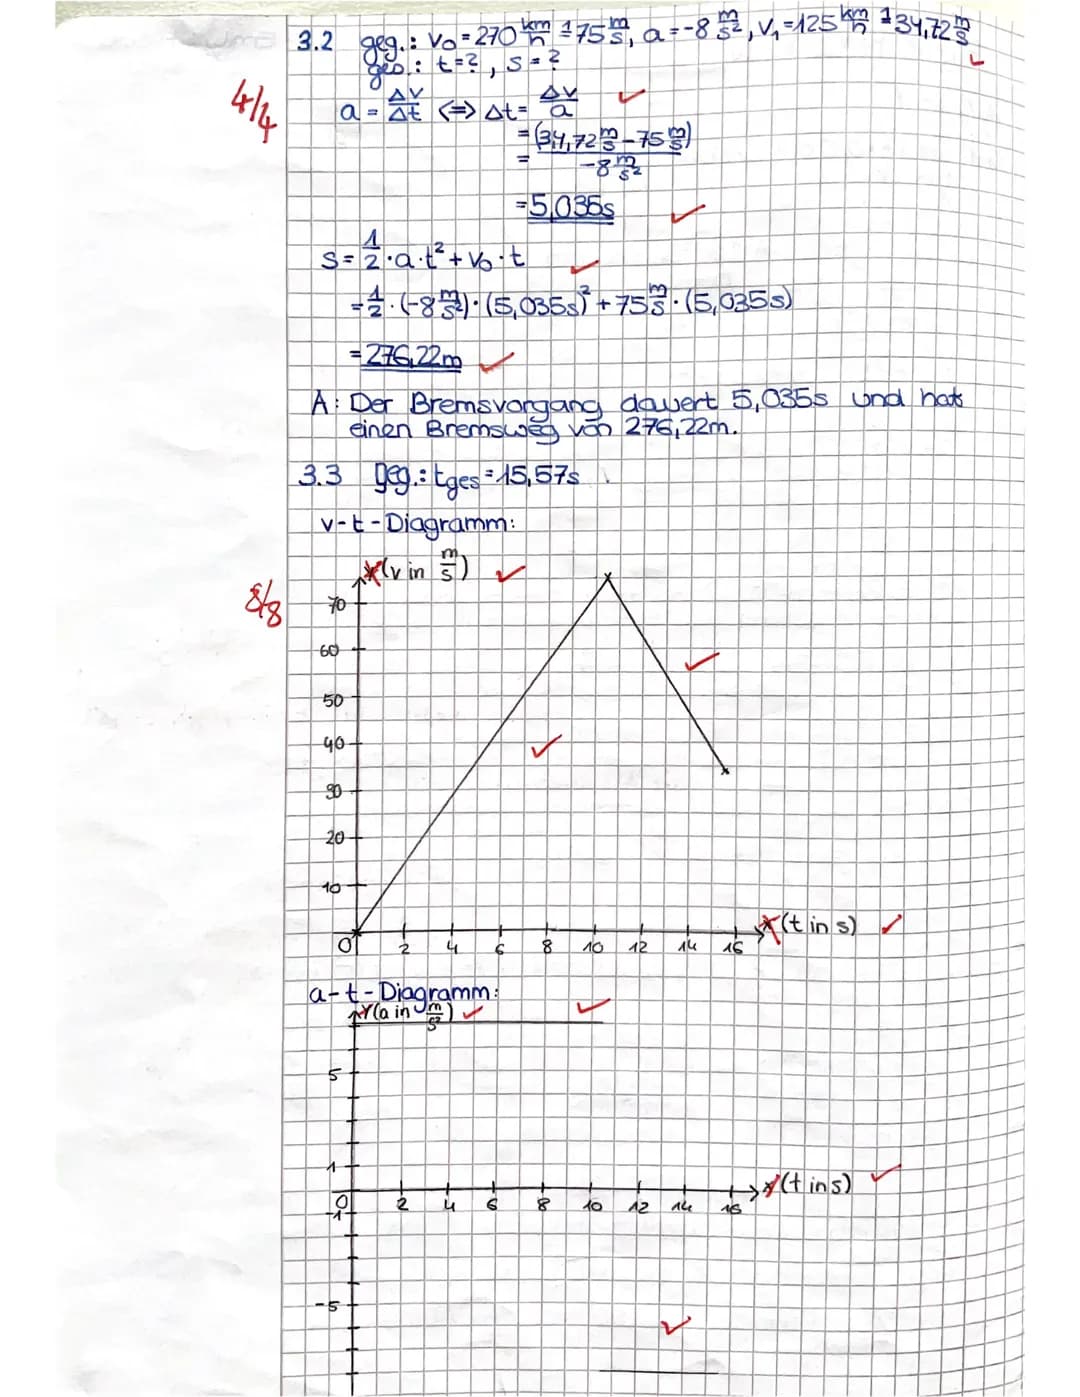 3.2 geg.: v₀ = 270 km/h ≙ 75 m/s, a = -8 m/s², v₁ = 125 km/h ≙ 34,72 m/s
ges.: t = ?, s = ?
4/4
a = Δv/Δt <=> Δt = Δv/a
= (34,72 m/s - 75 m/s)
= -8 m/s²
= 5,035s
s = 1/2 · a · t² + v₀ · t
= 1/2 · (-8 m/s²) · (5,035s)² + 75 m/s · (5,035s)
= 276,22m
A: Der Bremsvorgang dauert 5,035s und hat
einen Bremsweg von 276,22m.
3.3 geg.: tges = 15,57s
v-t-Diagramm:
(v in m/s)
8/8
70
60
50
40
30
20
10
(t in s)
0 2 4 6 8 10 12 14 16
a-t-Diagramm:
(a in m/s²)
5
1
(t in s)
0 2 4 6 8 10 12 14 16
-1
-5